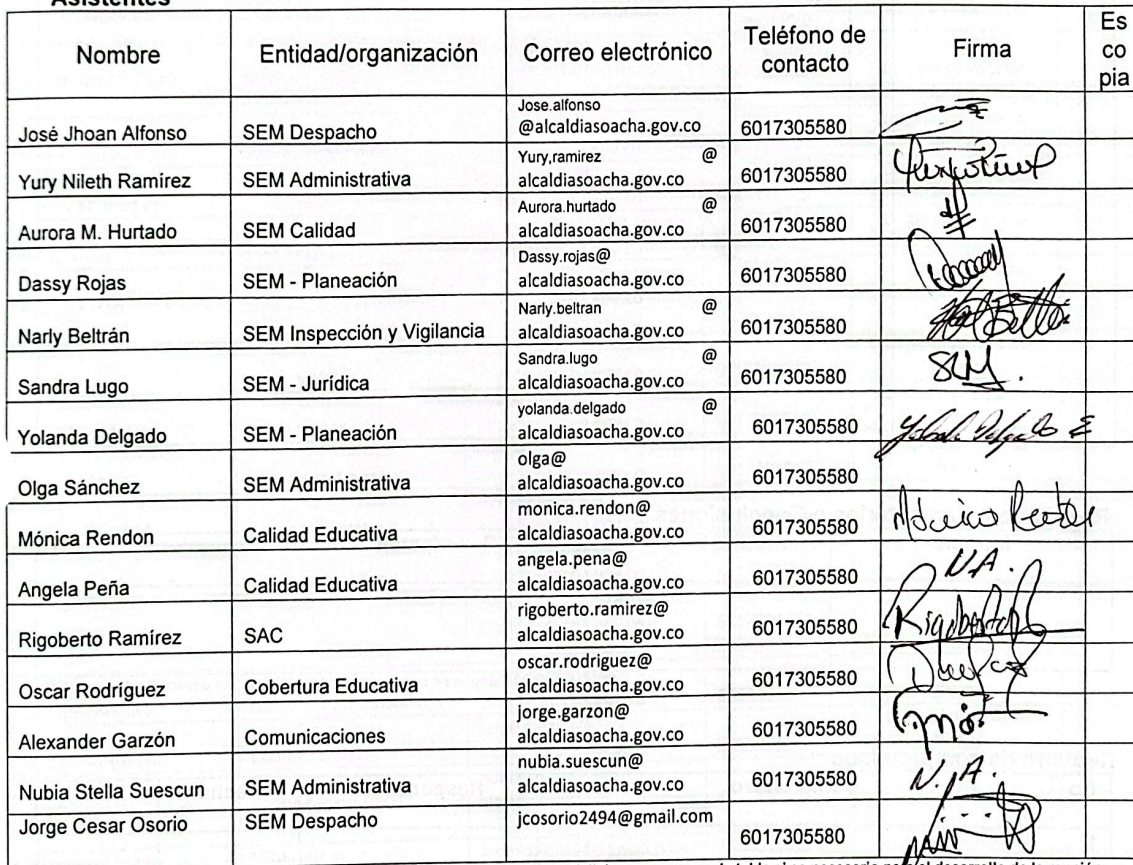 Asistentes
Nombre Entidad/organización Correo electrónico Teléfono de contacto Firma Es co pia
José Jhoan Alfonso SEM Despacho Jose.alfonso @alcaldiasoacha.gov.co 6017305580
Yury Nileth Ramírez SEM Administrativa Yury,ramirez @ alcaldiasoacha.gov.co 6017305580
Aurora M. Hurtado SEM Calidad Aurora.hurtado @ alcaldiasoacha.gov.co 6017305580
Dassy Rojas SEM - Planeación Dassy.rojas@ alcaldiasoacha.gov.co 6017305580
Narly Beltrán SEM Inspección y Vigilancia Narly.beltran @ alcaldiasoacha.gov.co 6017305580
Sandra Lugo SEM - Jurídica Sandra.lugo @ alcaldiasoacha.gov.co 6017305580 SLM.
Yolanda Delgado SEM - Planeación yolanda.delgado @ alcaldiasoacha.gov.co 6017305580
Olga Sánchez SEM Administrativa olga@ alcaldiasoacha.gov.co 6017305580
Mónica Rendon Calidad Educativa monica.rendon@ alcaldiasoacha.gov.co 6017305580
Angela Peña Calidad Educativa angela.pena@ alcaldiasoacha.gov.co 6017305580 N.A.
Rigoberto Ramírez SAC rigoberto.ramirez@ alcaldiasoacha.gov.co 6017305580
Oscar Rodríguez Cobertura Educativa oscar.rodriguez@ alcaldiasoacha.gov.co 6017305580
Alexander Garzón Comunicaciones jorge.garzon@ alcaldiasoacha.gov.co 6017305580
Nubia Stella Suescun SEM Administrativa nubia.suescun@ alcaldiasoacha.gov.co 6017305580 N.A.
Jorge Cesar Osorio SEM Despacho jcosorio2494@gmail.com 6017305580